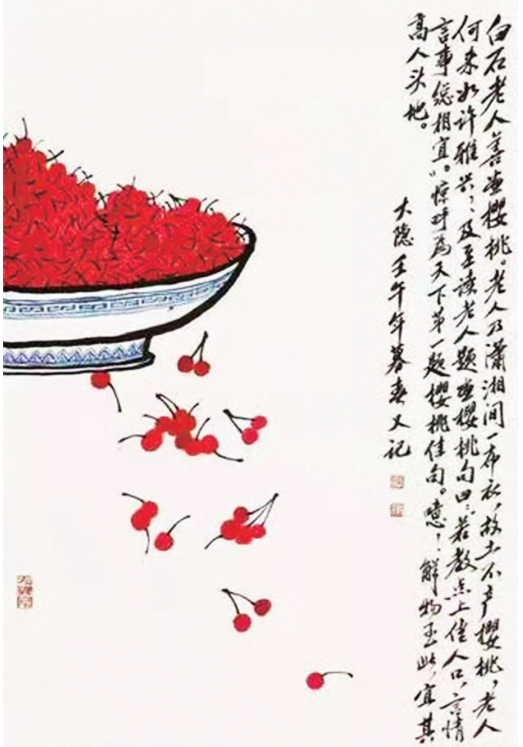 白石老人善画樱桃。老人乃潇湘间一布衣，故土不产樱桃，老人
何来如许雅兴？及至读老人题画樱桃句曰：若教点上佳人口，言情
言事总相宜。”惊呼为天下第一题樱桃佳句。噫！解物至此，宜其
高人头地。
大隐壬午年暮春又记